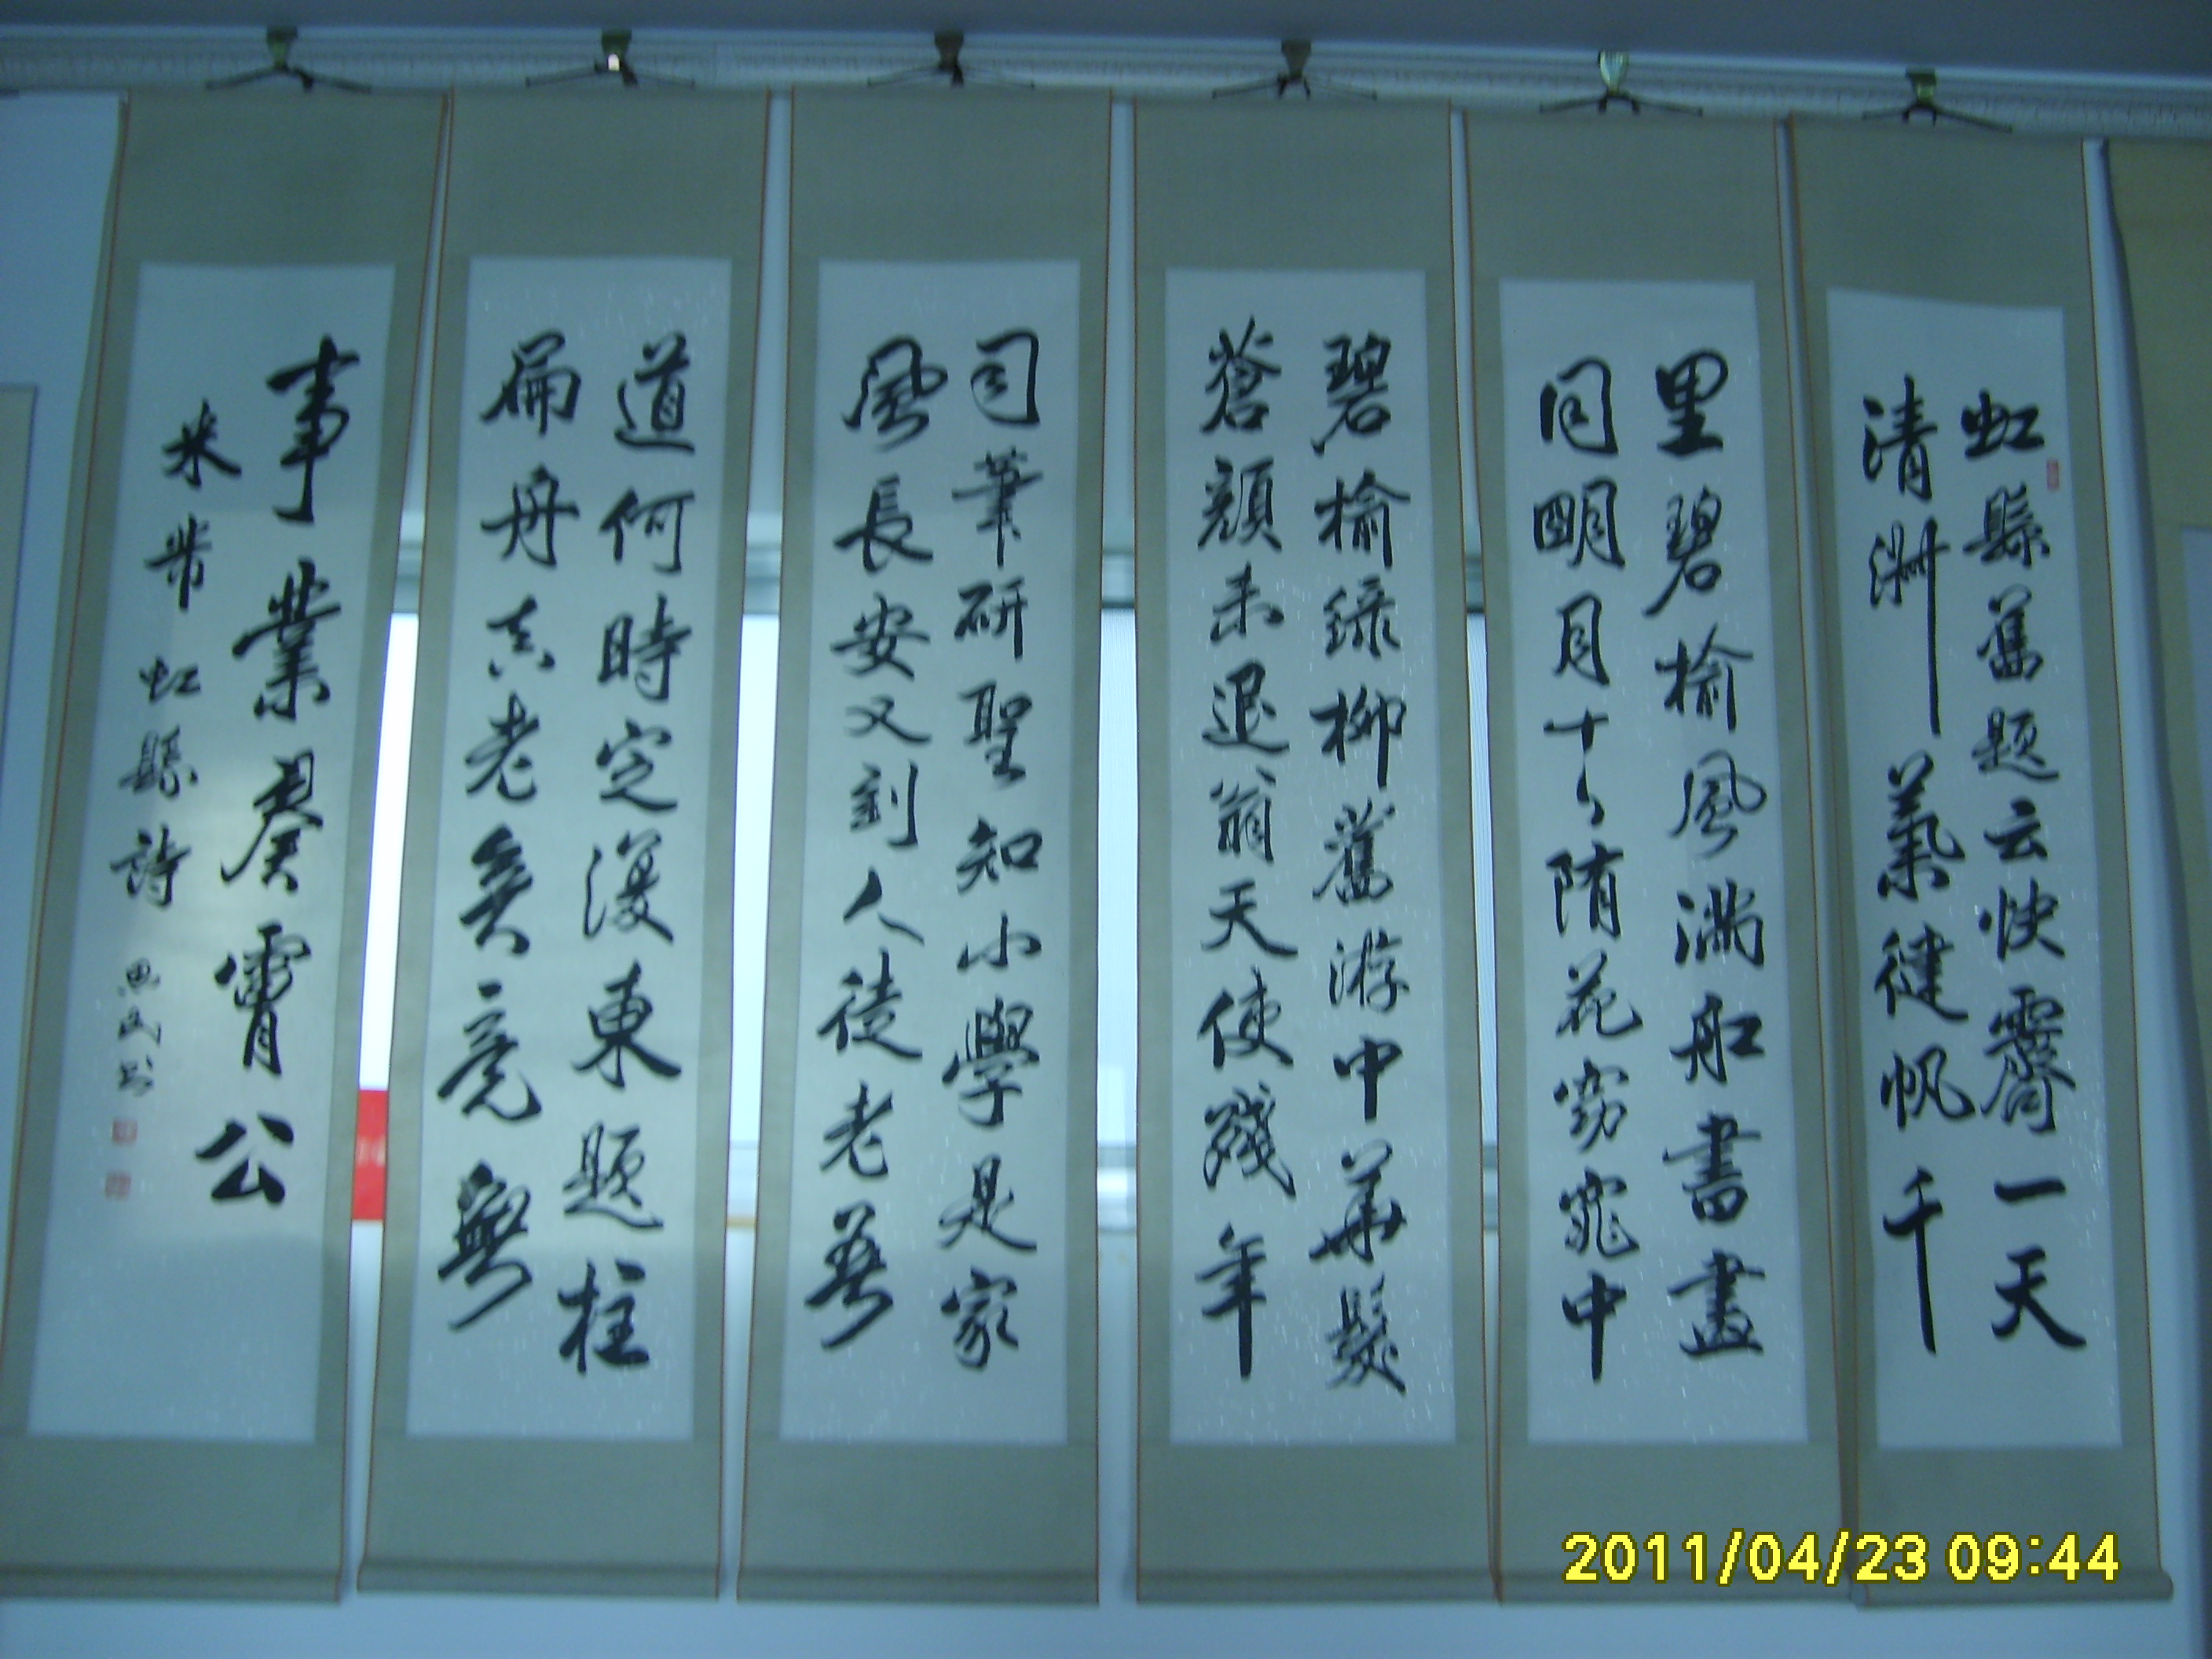 虹縣舊題云快霽一天
清淑氣健帆千
里碧榆風滿舡書畫
同明月十日隋花窈窕中
碧榆綠柳舊游中華髮
蒼顏未退翁天使殘年
司筆研聖知小學是家
風長安又到人徒老吾
道何時定復東題柱
扁舟真老矣竟無
事業奏膚公
米芾虹縣詩
2011/04/23 09:44